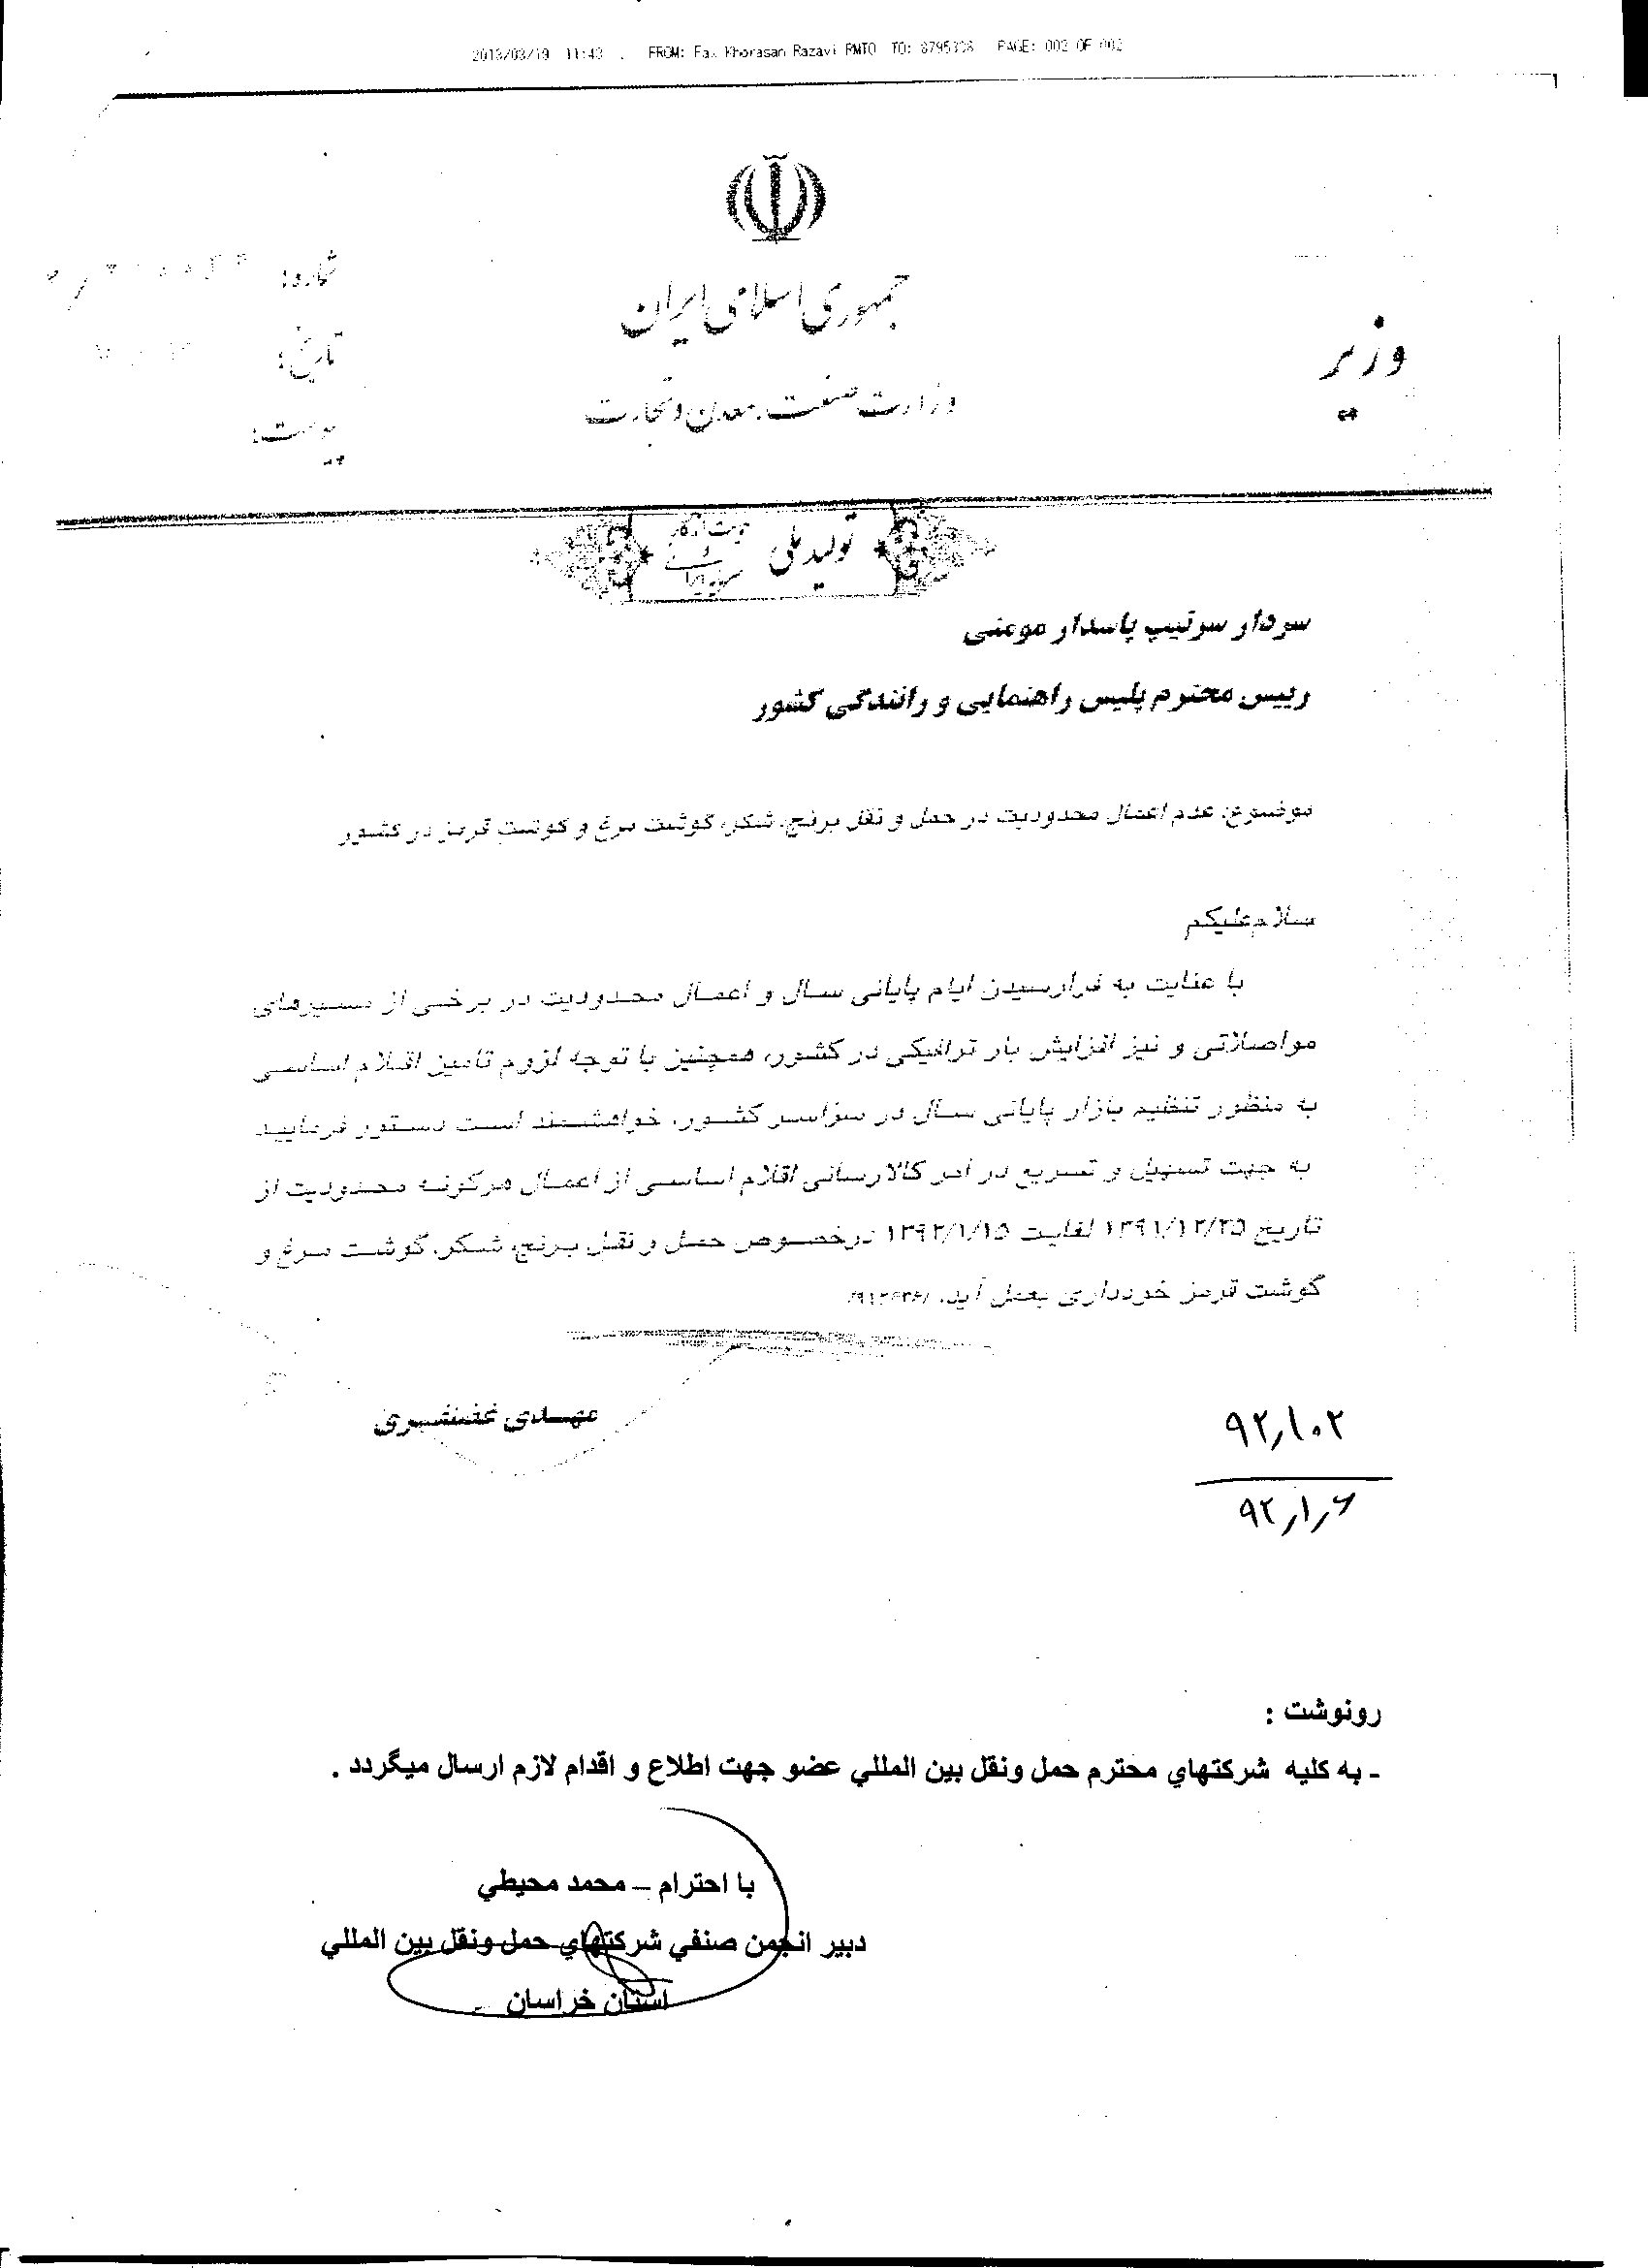 2013/03/19 11:43 FROM: Fax Khorasan Razavi RMTO TO: 8795338 PAGE: 002 OF 002
جمهوری اسلامی ایران
وزارت صنعت، معدن و تجارت
وزیر
شماره:
تاریخ:
پیوست:
تولید ملی
سردار سرتیپ پاسدار مومنی
رییس محترم پلیس راهنمایی و رانندگی کشور
موضوع: عدم اعمال محدودیت در حمل و نقل برنج، شکر، گوشت مرغ و گوشت قرمز در کشور
سلام علیکم
با عنایت به فرارسیدن ایام پایانی سال و اعمال محدودیت در برخی از مسیرهای
مواصلاتی و نیز افزایش بار ترافیکی در کشور، همچنین با توجه لزوم تامین اقلام اساسی
به منظور تنظیم بازار پایانی سال در سراسر کشور، خواهشمند است دستور فرمایید
به جهت تسهیل و تسریع در امر کالارسانی اقلام اساسی از اعمال هرگونه محدودیت از
تاریخ ۱۳۹۱/۱۲/۲۵ لغایت ۱۳۹۲/۱/۱۵ درخصوص حمل و نقل برنج، شکر، گوشت مرغ و
گوشت قرمز خودداری بعمل آید.
مهدی غضنفری
۹۲٫۱۰۲
۹۲٫۱٫۶
رونوشت :
ـ به کلیه شرکتهاي محترم حمل ونقل بین المللي عضو جهت اطلاع و اقدام لازم ارسال میگردد .
با احترام – محمد محیطي
دبیر انجمن صنفي شرکتهاي حمل ونقل بین المللي
استان خراسان